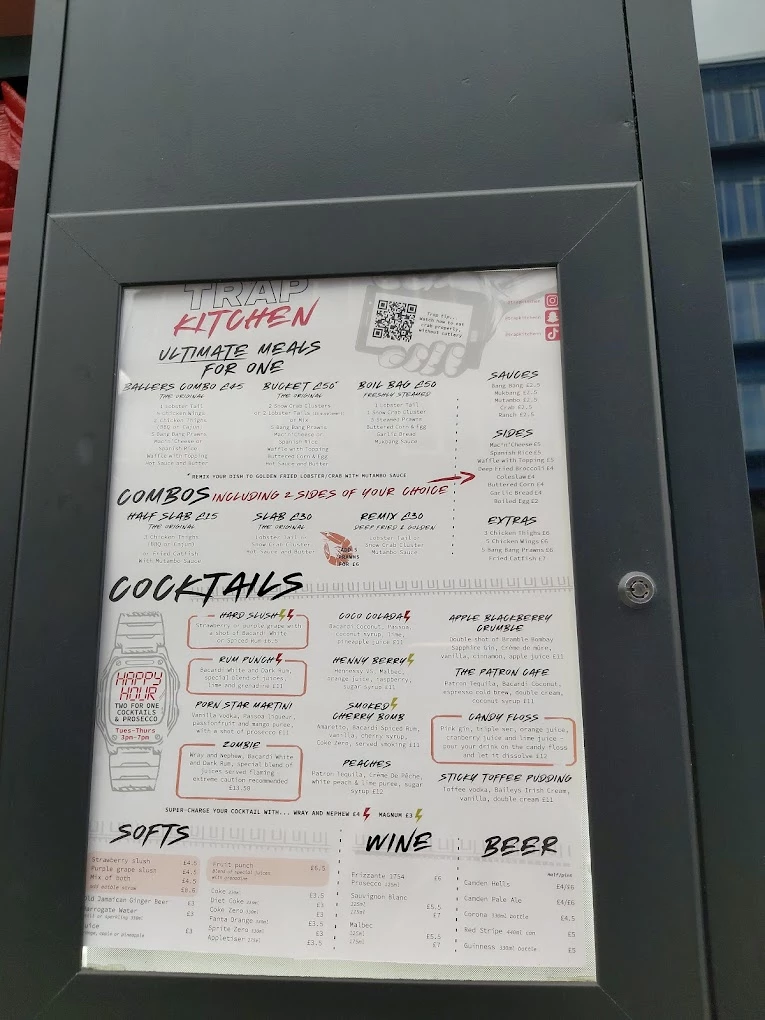 TRAP
KITCHEN
Trap Tip..
Watch how to eat
crab properly,
without cutlery
ULTIMATE MEALS
FOR ONE
BALLERS COMBO £45
THE ORIGINAL
1 Lobster Tail
3 Chicken Wings
2 Chicken Thighs
(BBQ or Cajun)
5 Bang Bang Prawns
Mac'n'Cheese or
Spanish Rice
Waffle with Topping
Hot Sauce and Butter
BUCKET £50*
THE ORIGINAL
2 Snow Crab Clusters
or Mix
5 Bang Bang Prawns
Mac'n'Cheese or
Spanish Rice
Waffle with Topping
Buttered Corn & Egg
Hot Sauce and Butter
BOIL BAG £50
FRESHLY STEAMED
1 Lobster Tail
1 Snow Crab Cluster
5 Steamed Prawns
Buttered Corn & Egg
Garlic Bread
Mukbang Sauce
*REMIX YOUR DISH TO GOLDEN FRIED LOBSTER/CRAB WITH MUTAMBO SAUCE
SAUCES
Bang Bang £2.5
Mukbang £2.5
Mutambo £2.5
Crab £2.5
Ranch £2.5
SIDES
Mac'n'Cheese £5
Spanish Rice £5
Waffle with Topping £5
Deep Fried Broccoli £4
Coleslaw £4
Buttered Corn £4
Garlic Bread £4
Boiled Egg £2
EXTRAS
3 Chicken Thighs £6
5 Chicken Wings £6
5 Bang Bang Prawns £6
Fried Catfish £7
COMBOS INCLUDING 2 SIDES OF YOUR CHOICE
HALF SLAB £15
THE ORIGINAL
3 Chicken Thighs
(BBQ or Cajun)
or Fried Catfish
With Mutambo Sauce
SLAB £30
THE ORIGINAL
Lobster Tail or
Snow Crab Cluster
Hot Sauce and Butter
REMIX £30
DEEP FRIED & GOLDEN
Lobster Tail or
Snow Crab Cluster
Mutambo Sauce
ADD 5
PRAWNS
FOR £6
COCKTAILS
HAPPY
HOUR
TWO FOR ONE
COCKTAILS
& PROSECCO
Tues-Thurs
3pm-7pm
HARD SLUSH
Strawberry or purple grape with
a shot of Bacardi White
or Spiced Rum £8.5
RUM PUNCH
Bacardi White and Dark Rum,
special blend of juices,
lime and grenadine £11
PORN STAR MARTINI
Vanilla vodka, Passoa liqueur,
passionfruit and mango puree,
with a shot of prosecco £11
ZOMBIE
Wray and Nephew, Bacardi White
and Dark Rum, special blend of
juices served flaming
extreme caution recommended
£13.50
COCO COLADA
Bacardi Coconut, Passoa,
coconut syrup, lime,
pineapple juice £11
HENNY BERRY
Hennessy VS, Malbec,
orange juice, raspberry,
sugar syrup £11
SMOKED
CHERRY BOMB
Amaretto, Bacardi Spiced Rum,
vanilla, cherry syrup,
Coke Zero, served smoking £11
PEACHES
Patron Tequila, Crème De Pêche,
white peach & lime puree, sugar
syrup £12
APPLE BLACKBERRY
CRUMBLE
Double shot of Bramble Bombay
Sapphire Gin, Crème de mûre,
vanilla, cinnamon, apple juice £11
THE PATRON CAFE
Patron Tequila, Bacardi Coconut,
espresso cold brew, double cream,
coconut syrup £11
CANDY FLOSS
Pink gin, triple sec, orange juice,
cranberry juice and lime juice -
pour your drink on the candy floss
and let it dissolve £12
STICKY TOFFEE PUDDING
Toffee vodka, Baileys Irish Cream,
vanilla, double cream £11
SUPER-CHARGE YOUR COCKTAIL WITH... WRAY AND NEPHEW £4 MAGNUM £3
SOFTS
Strawberry slush £4.5
Purple grape slush £4.5
Mix of both £4.5
add edible straw £0.6
Old Jamaican Ginger Beer £3
Harrogate Water £3
still or sparkling 330ml
Juice £3
orange, apple or pineapple
Fruit punch £6.5
Blend of special juices
with grenadine
Coke 330ml £3.5
Diet Coke 330ml £3
Coke Zero 330ml £3
Fanta Orange 330ml £3.5
Sprite Zero 330ml £3
Appletiser 275ml £3.5
WINE
Frizzante 1754 £6
Prosecco 125ml
Sauvignon Blanc
125ml £5.5
175ml £7
Malbec
125ml £5.5
175ml £7
BEER
Half/pint
Camden Hells £4/£6
Camden Pale Ale £4/£6
Corona 330ml bottle £4.5
Red Stripe 440ml can £5
Guinness 330ml bottle £5